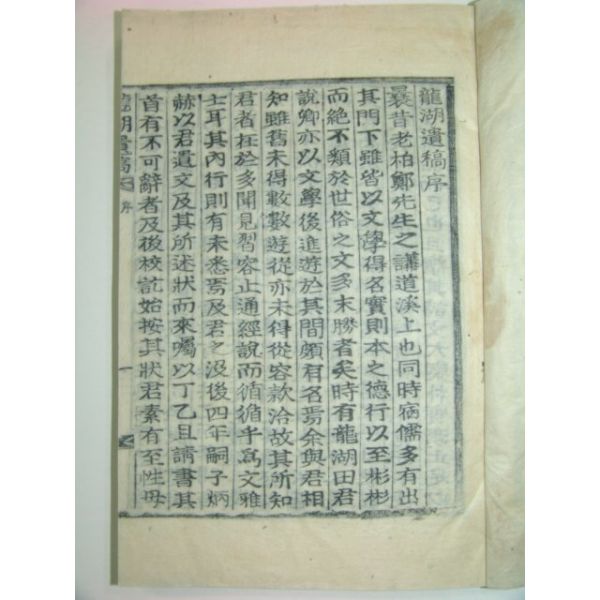 龍湖遺稿序
曩昔老柏鄭先生之講道溪上也同時病儒多有出
其門下雖皆以文學得名實則本之德行以至彬彬
而絶不類於世俗之文多末勝者矣時有龍湖田君
說卿亦以文學後進遊於其間頗有名焉余與君相
知雖舊未得數數遊從亦未得從容款洽故其所知
君者在於多聞見習容止通經說而循循乎爲文雅
士耳其內行則有未悉焉及君之沒後四年嗣子炳
赫以君遺文及其所述狀而來囑以丁乙且請書其
首有不可辭者及後校訖始按其狀君素有至性母
湖遺稿 序 一